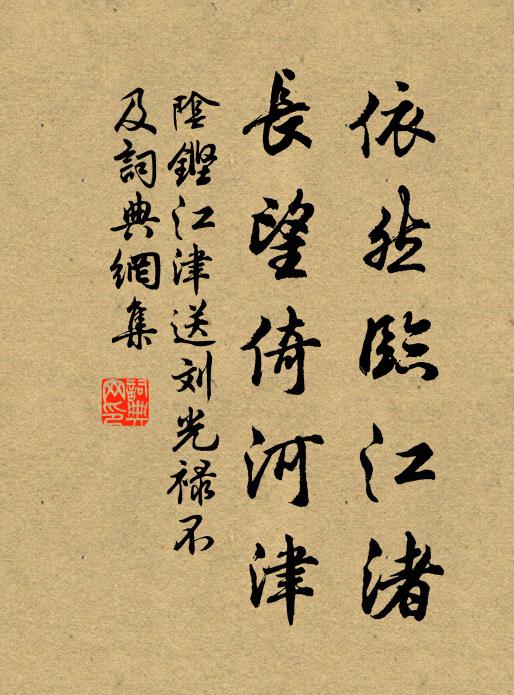 依然臨江渚
長望倚河津
陰鏗江津送刘光禄不
及詞典網集
詞典
网印